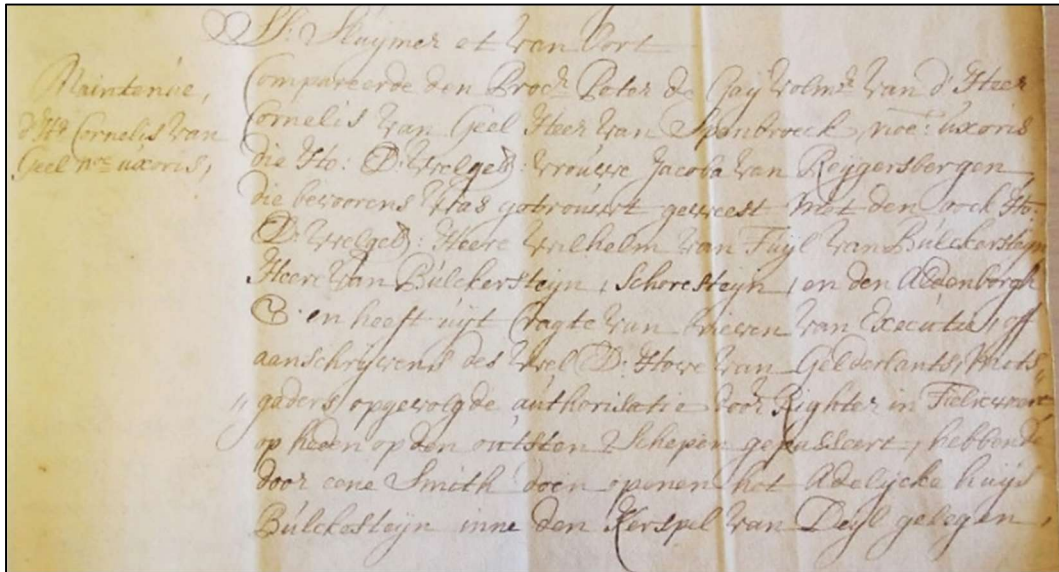 Ss: Sluijmer et van Oort
Maintenue,
d'Hr Cornelis van
Geel noe uxoris,
Compareerde den Procr Peter de Gaij volmr van d'Heer
Cornelis van Geel Heer van Spanbroeck, noe: uxoris
die Ho: Ed: welgeb: vrouwe Jacoba van Reijgersbergen,
die bevoorens was getrouwt geweest met den oock Ho:
Ed: welgeb: Heere Wilhelm van Tuijl van Bulckesteijn
Heere van Bulckesteijn, Schoresteijn, en den Aldenborgh
En heeft uijt cragte van brieven van Executie, off
aanschrijvens des wel Ed: Hove van Gelderlants, mits„
„gaders opgevolgde authorisatie door Righter in Tielrewaert
op heden op den outsten Schepen gepasseert, hebbende
door eene Smith doen openen het Adelijcke huijs
Bulckesteijn inne den Kerspel van Deijl gelegen,